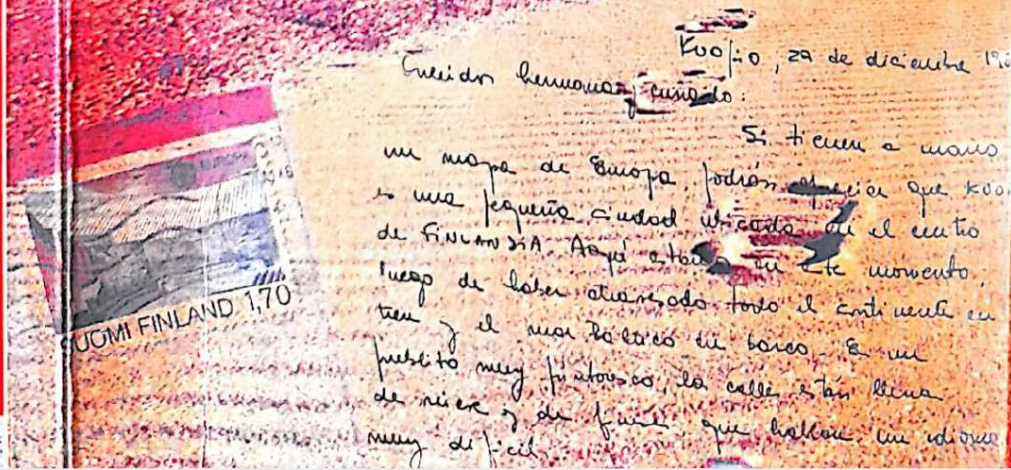 Kuopio, 29 de diciembre 19
Queridos hermana y cuñado:
Si tienen a mano
un mapa de Europa, podrán apreciar que Kuo
es una pequeña ciudad ubicada en el centro
de FINLANDIA. Aquí estamos en este momento,
luego de haber atravesado todo el continente en
tren y el mar Báltico en barco. Es un
pueblito muy pintoresco, las calles están llenas
de nieve y de que hablan un idioma
muy difícil
SUOMI FINLAND 1,70